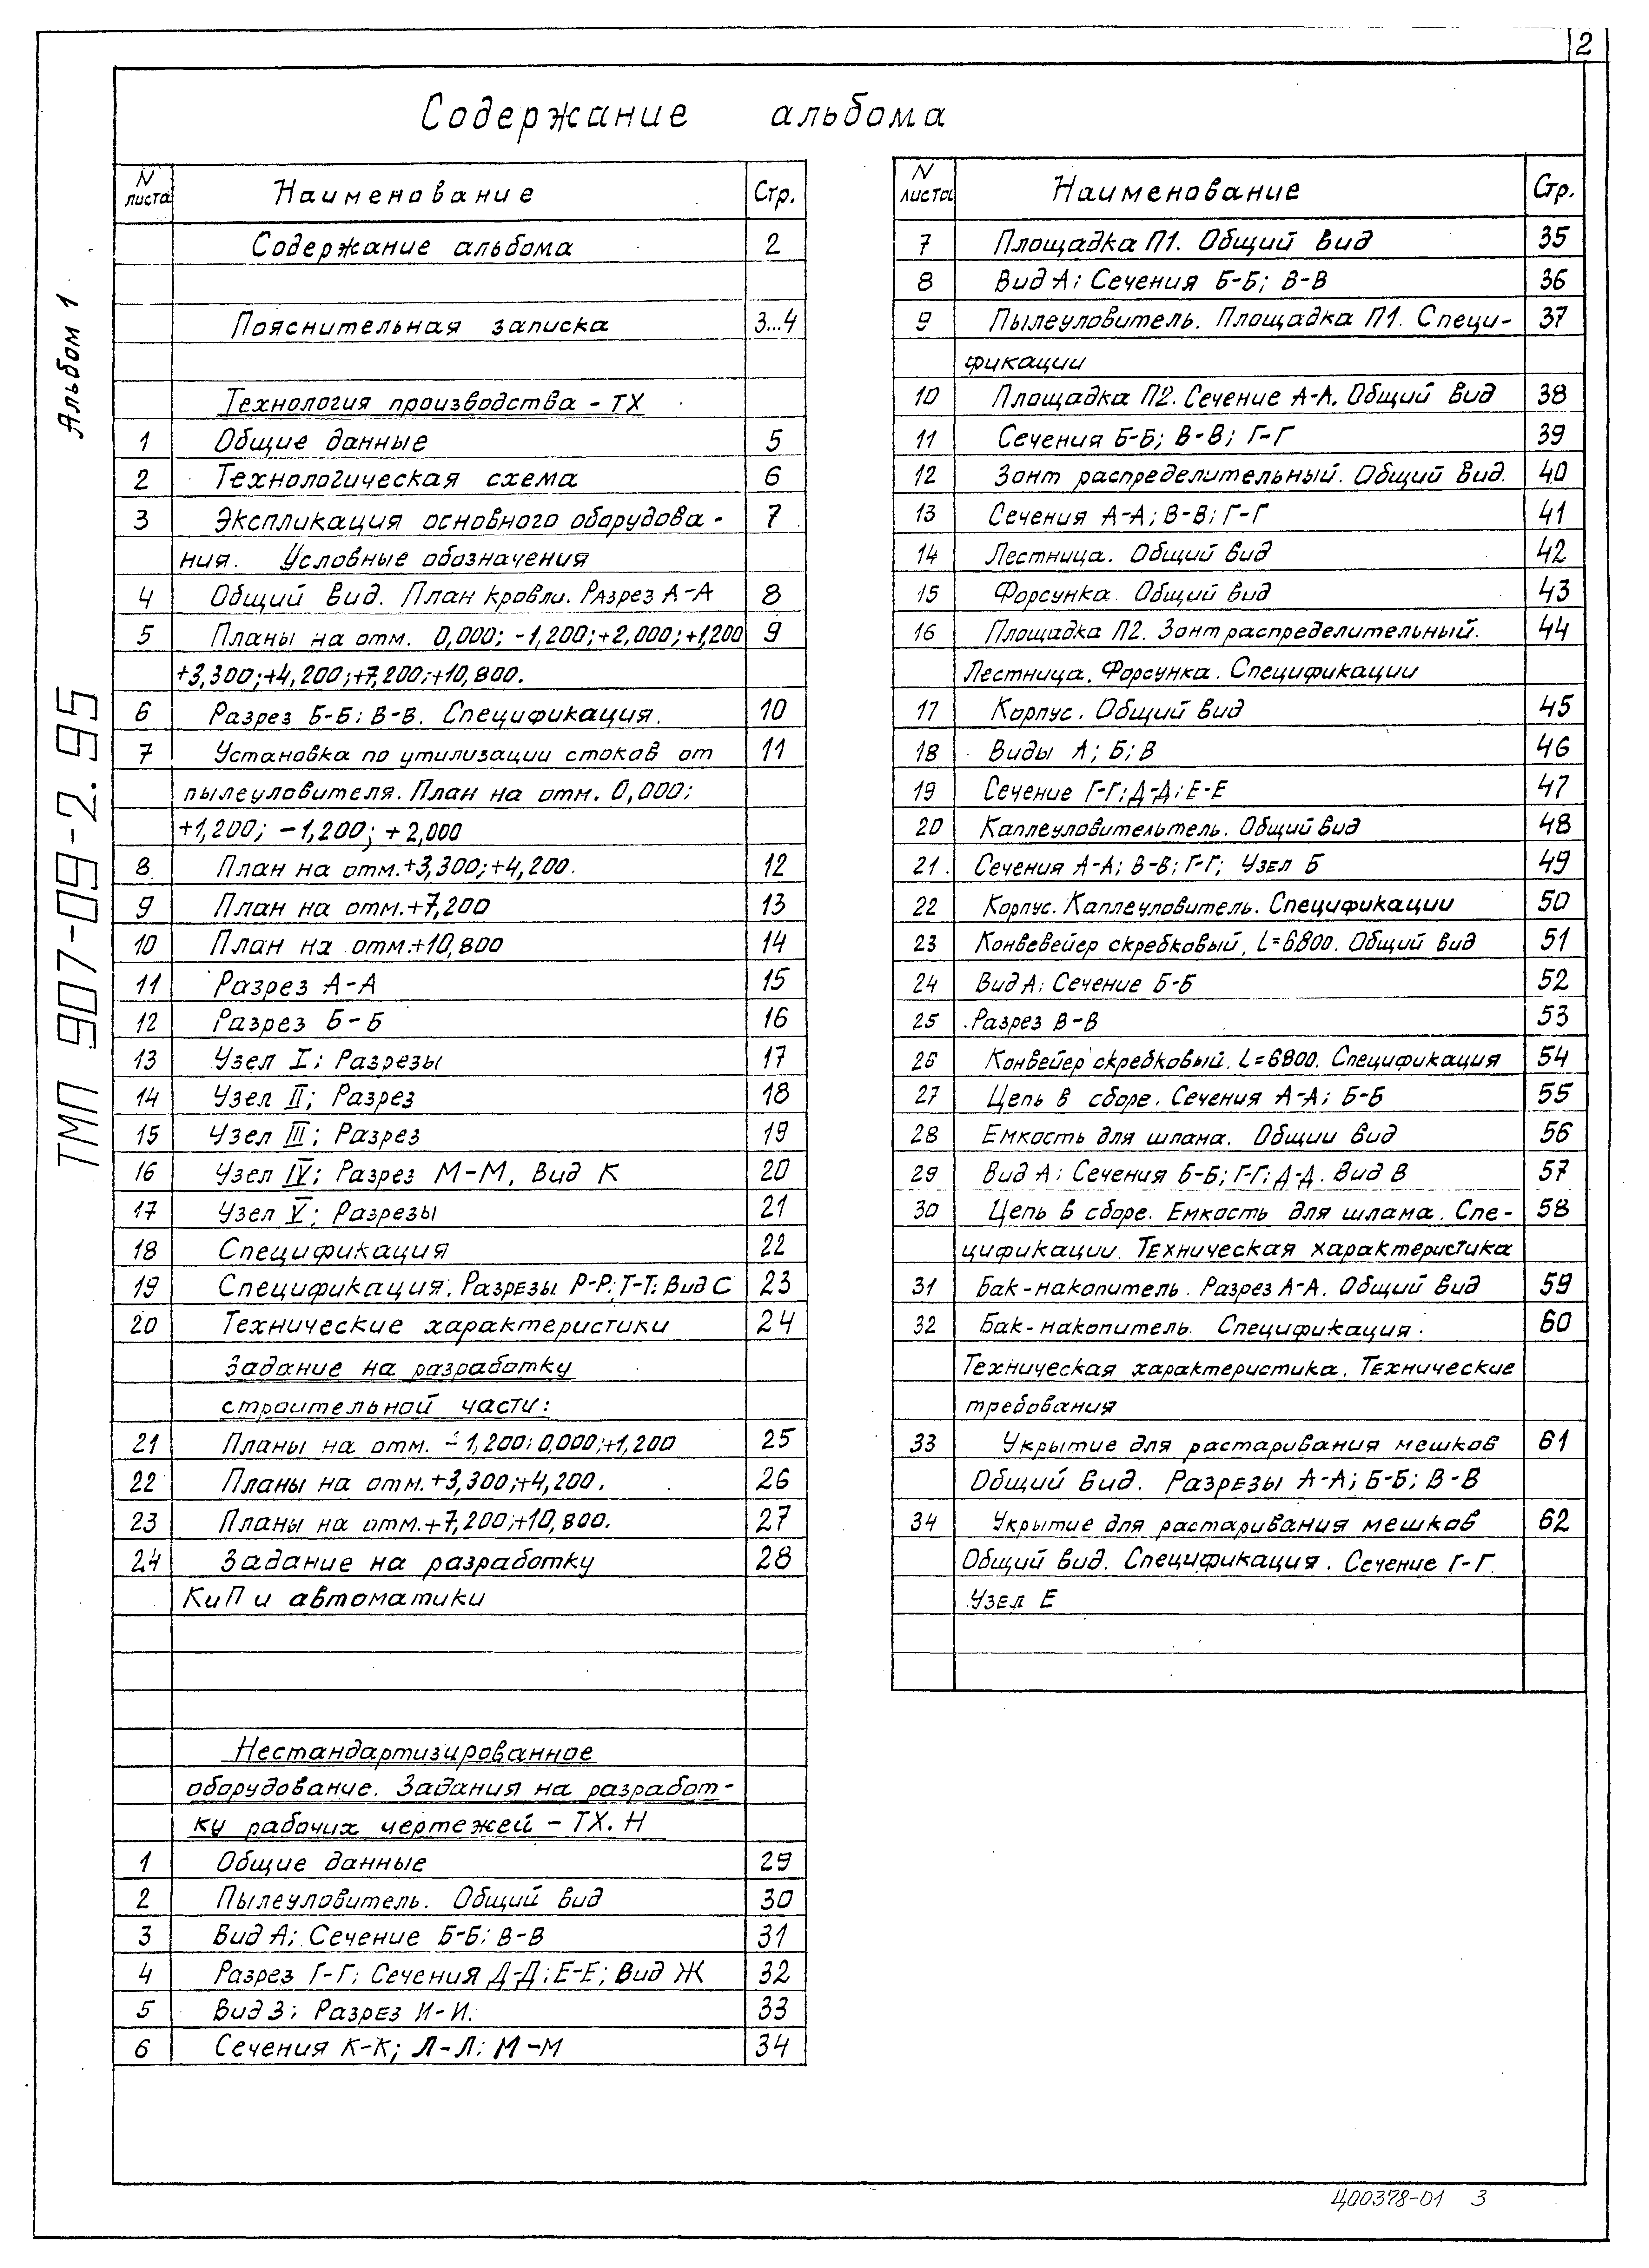 2
Содержание альбома
Альбом 1
ТМП 907-09-2.95
N листа Наименование Стр.
Содержание альбома 2
Пояснительная записка 3...4
Технология производства - ТХ
1 Общие данные 5
2 Технологическая схема 6
3 Экспликация основного оборудова- 7
ния. Условные обозначения
4 Общий вид. План кровли. Разрез А-А 8
5 Планы на отм. 0,000; -1,200; +2,000; +1,200 9
+3,300; +4,200; +7,200; +10,800.
6 Разрез Б-Б; В-В. Спецификация. 10
7 Установка по утилизации стоков от 11
пылеуловителя. План на отм. 0,000;
+1,200; -1,200; +2,000
8 План на отм. +3,300; +4,200. 12
9 План на отм. +7,200 13
10 План на отм. +10,800 14
11 Разрез А-А 15
12 Разрез Б-Б 16
13 Узел I; Разрезы 17
14 Узел II; Разрез 18
15 Узел III; Разрез 19
16 Узел IV; Разрез М-М, Вид К 20
17 Узел V; Разрезы 21
18 Спецификация 22
19 Спецификация. Разрезы Р-Р; Т-Т; Вид С 23
20 Технические характеристики 24
Задание на разработку
строительной части:
21 Планы на отм. -1,200; 0,000; +1,200 25
22 Планы на отм. +3,300; +4,200. 26
23 Планы на отм. +7,200; +10,800. 27
24 Задание на разработку 28
КиП и автоматики
Нестандартизированное
оборудование. Задания на разработ-
ку рабочих чертежей - ТХ.Н
1 Общие данные 29
2 Пылеуловитель. Общий вид 30
3 Вид А; Сечение Б-Б; В-В 31
4 Разрез Г-Г; Сечения Д-Д; Е-Е; Вид Ж 32
5 Вид З; Разрез И-И. 33
6 Сечения К-К; Л-Л; М-М 34
N листа Наименование Стр.
7 Площадка П1. Общий вид 35
8 Вид А; Сечения Б-Б; В-В 36
9 Пылеуловитель. Площадка П1. Специ- 37
фикации
10 Площадка П2. Сечение А-А. Общий вид 38
11 Сечения Б-Б; В-В; Г-Г 39
12 Зонт распределительный. Общий вид. 40
13 Сечения А-А; В-В; Г-Г 41
14 Лестница. Общий вид 42
15 Форсунка. Общий вид 43
16 Площадка П2. Зонт распределительный. 44
Лестница. Форсунка. Спецификации
17 Корпус. Общий вид 45
18 Виды А; Б; В 46
19 Сечение Г-Г; Д-Д; Е-Е 47
20 Каплеуловительтель. Общий вид 48
21. Сечения А-А; В-В; Г-Г; Узел Б 49
22 Корпус. Каплеуловитель. Спецификации 50
23 Конвевейер скребковый, L=6800. Общий вид 51
24 Вид А; Сечение Б-Б 52
25 Разрез В-В 53
26 Конвейер скребковый. L=6800. Спецификация 54
27 Цепь в сборе. Сечения А-А; Б-Б 55
28 Емкость для шлама. Общии вид 56
29 Вид А; Сечения Б-Б; Г-Г; Д-Д. Вид В 57
30 Цепь в сборе. Емкость для шлама. Спе- 58
цификации. Техническая характеристика
31 Бак-накопитель. Разрез А-А. Общий вид 59
32 Бак-накопитель. Спецификация. 60
Техническая характеристика. Технические
требования
33 Укрытие для растаривания мешков 61
Общий вид. Разрезы А-А; Б-Б; В-В
34 Укрытие для растаривания мешков 62
Общий вид. Спецификация. Сечение Г-Г.
Узел Е
Ц00378-01 3